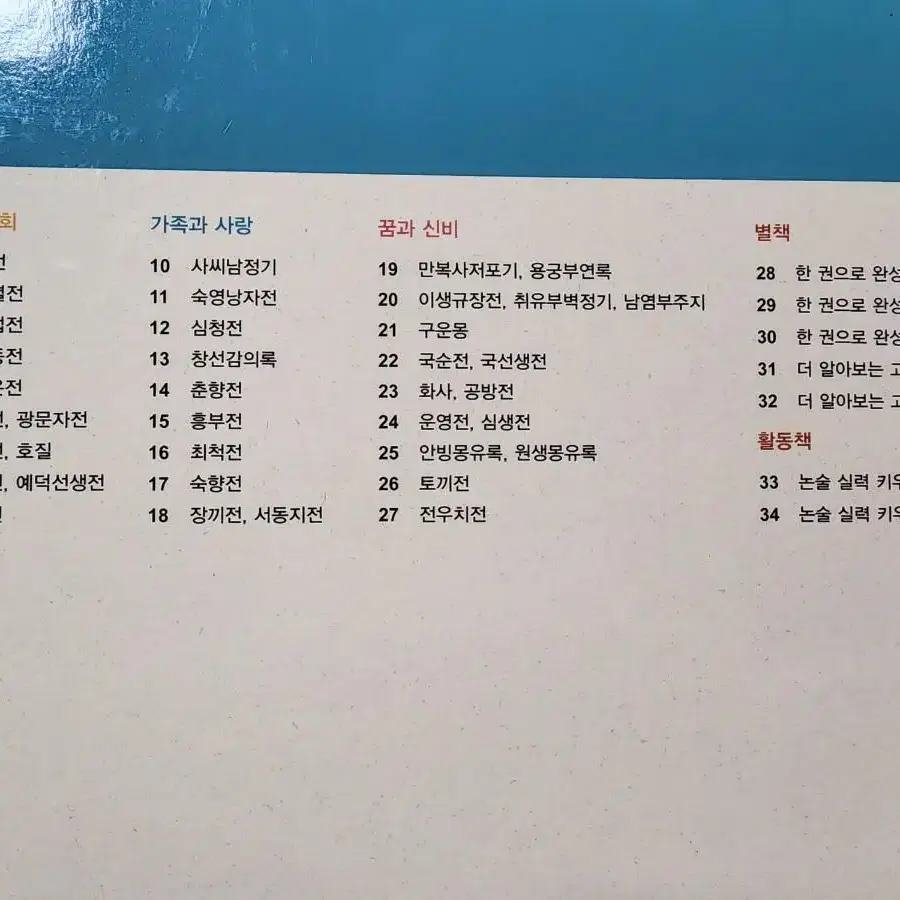 회
전
전
전
전
전
광문자전
호질
예덕선생전
전
가족과 사랑
10 사씨남정기
11 숙영낭자전
12 심청전
13 창선감의록
14 춘향전
15 흥부전
16 최척전
17 숙향전
18 장끼전, 서동지전
꿈과 신비
19 만복사저포기, 용궁부연록
20 이생규장전, 취유부벽정기, 남염부주지
21 구운몽
22 국순전, 국선생전
23 화사, 공방전
24 운영전, 심생전
25 안빙몽유록, 원생몽유록
26 토끼전
27 전우치전
별책
28 한 권으로 완성
29 한 권으로 완성
30 한 권으로 완성
31 더 알아보는 고
32 더 알아보는 고
활동책
33 논술 실력 키우
34 논술 실력 키우